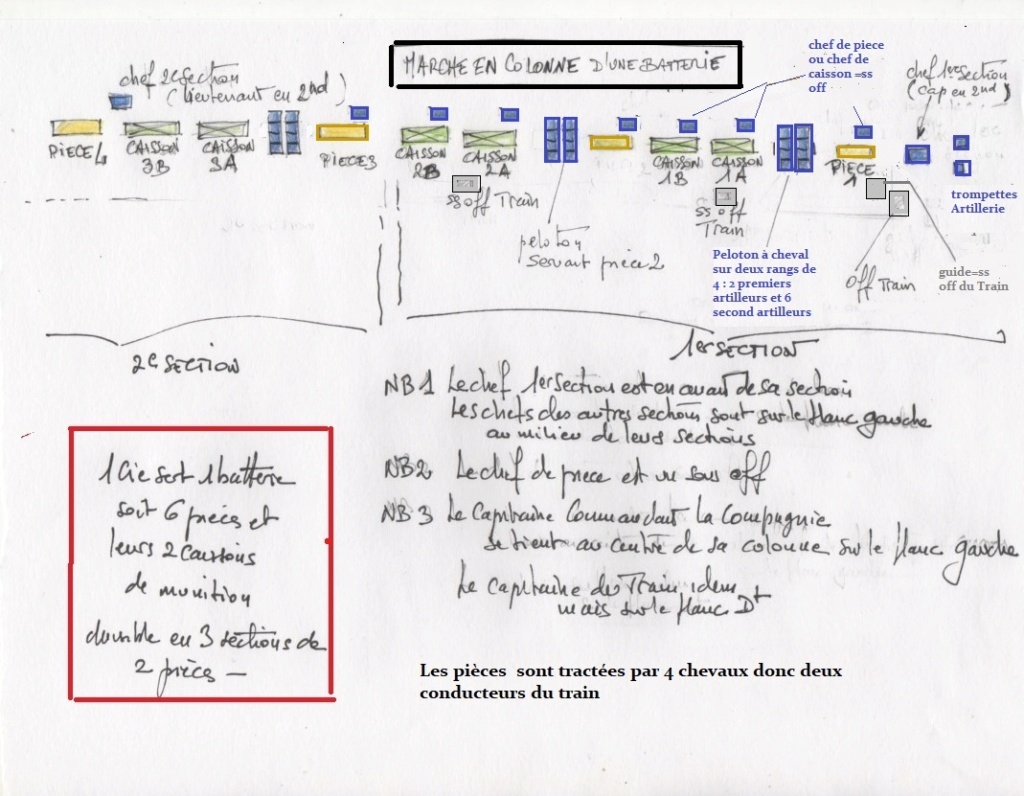 MARCHE EN COLONNE D'UNE BATTERIE
chef de piece
ou chef de
caisson =ss
off
chef 2e section
(lieutenant en 2nd)
chef 1er section
(Cap en 2nd)
PIECE 4
CAISSON
3B
CAISSON
3A
PIECE 3
CAISSON
2B
CAISSON
2A
CAISSON
1B
CAISSON
1A
PIECE
1
ss off Train
ss off
Train
trompettes
Artillerie
peloton
Servant pièce 2
Peloton à cheval
sur deux rangs de
4 : 2 premiers
artilleurs et 6
second artilleurs
Off Train
guide=ss
off du Train
2e SECTION
1er SECTION
NB 1 Le chef 1er section est en avant de sa section
Les chefs des autres sections sont sur le flanc gauche
au milieu de leurs sections
NB 2 Le chef de piece est un sous off
NB 3 Le Capitaine Commandant la Compagnie
se tient au centre de sa colonne sur le flanc gauche
Le Capitaine du Train idem
mais sur le flanc Dt
1 Cie sert 1 batterie
soit 6 pièces et
leurs 2 caissons
de munition
divisible en 3 sections de
2 pièces —
Les pièces sont tractées par 4 chevaux donc deux
conducteurs du train